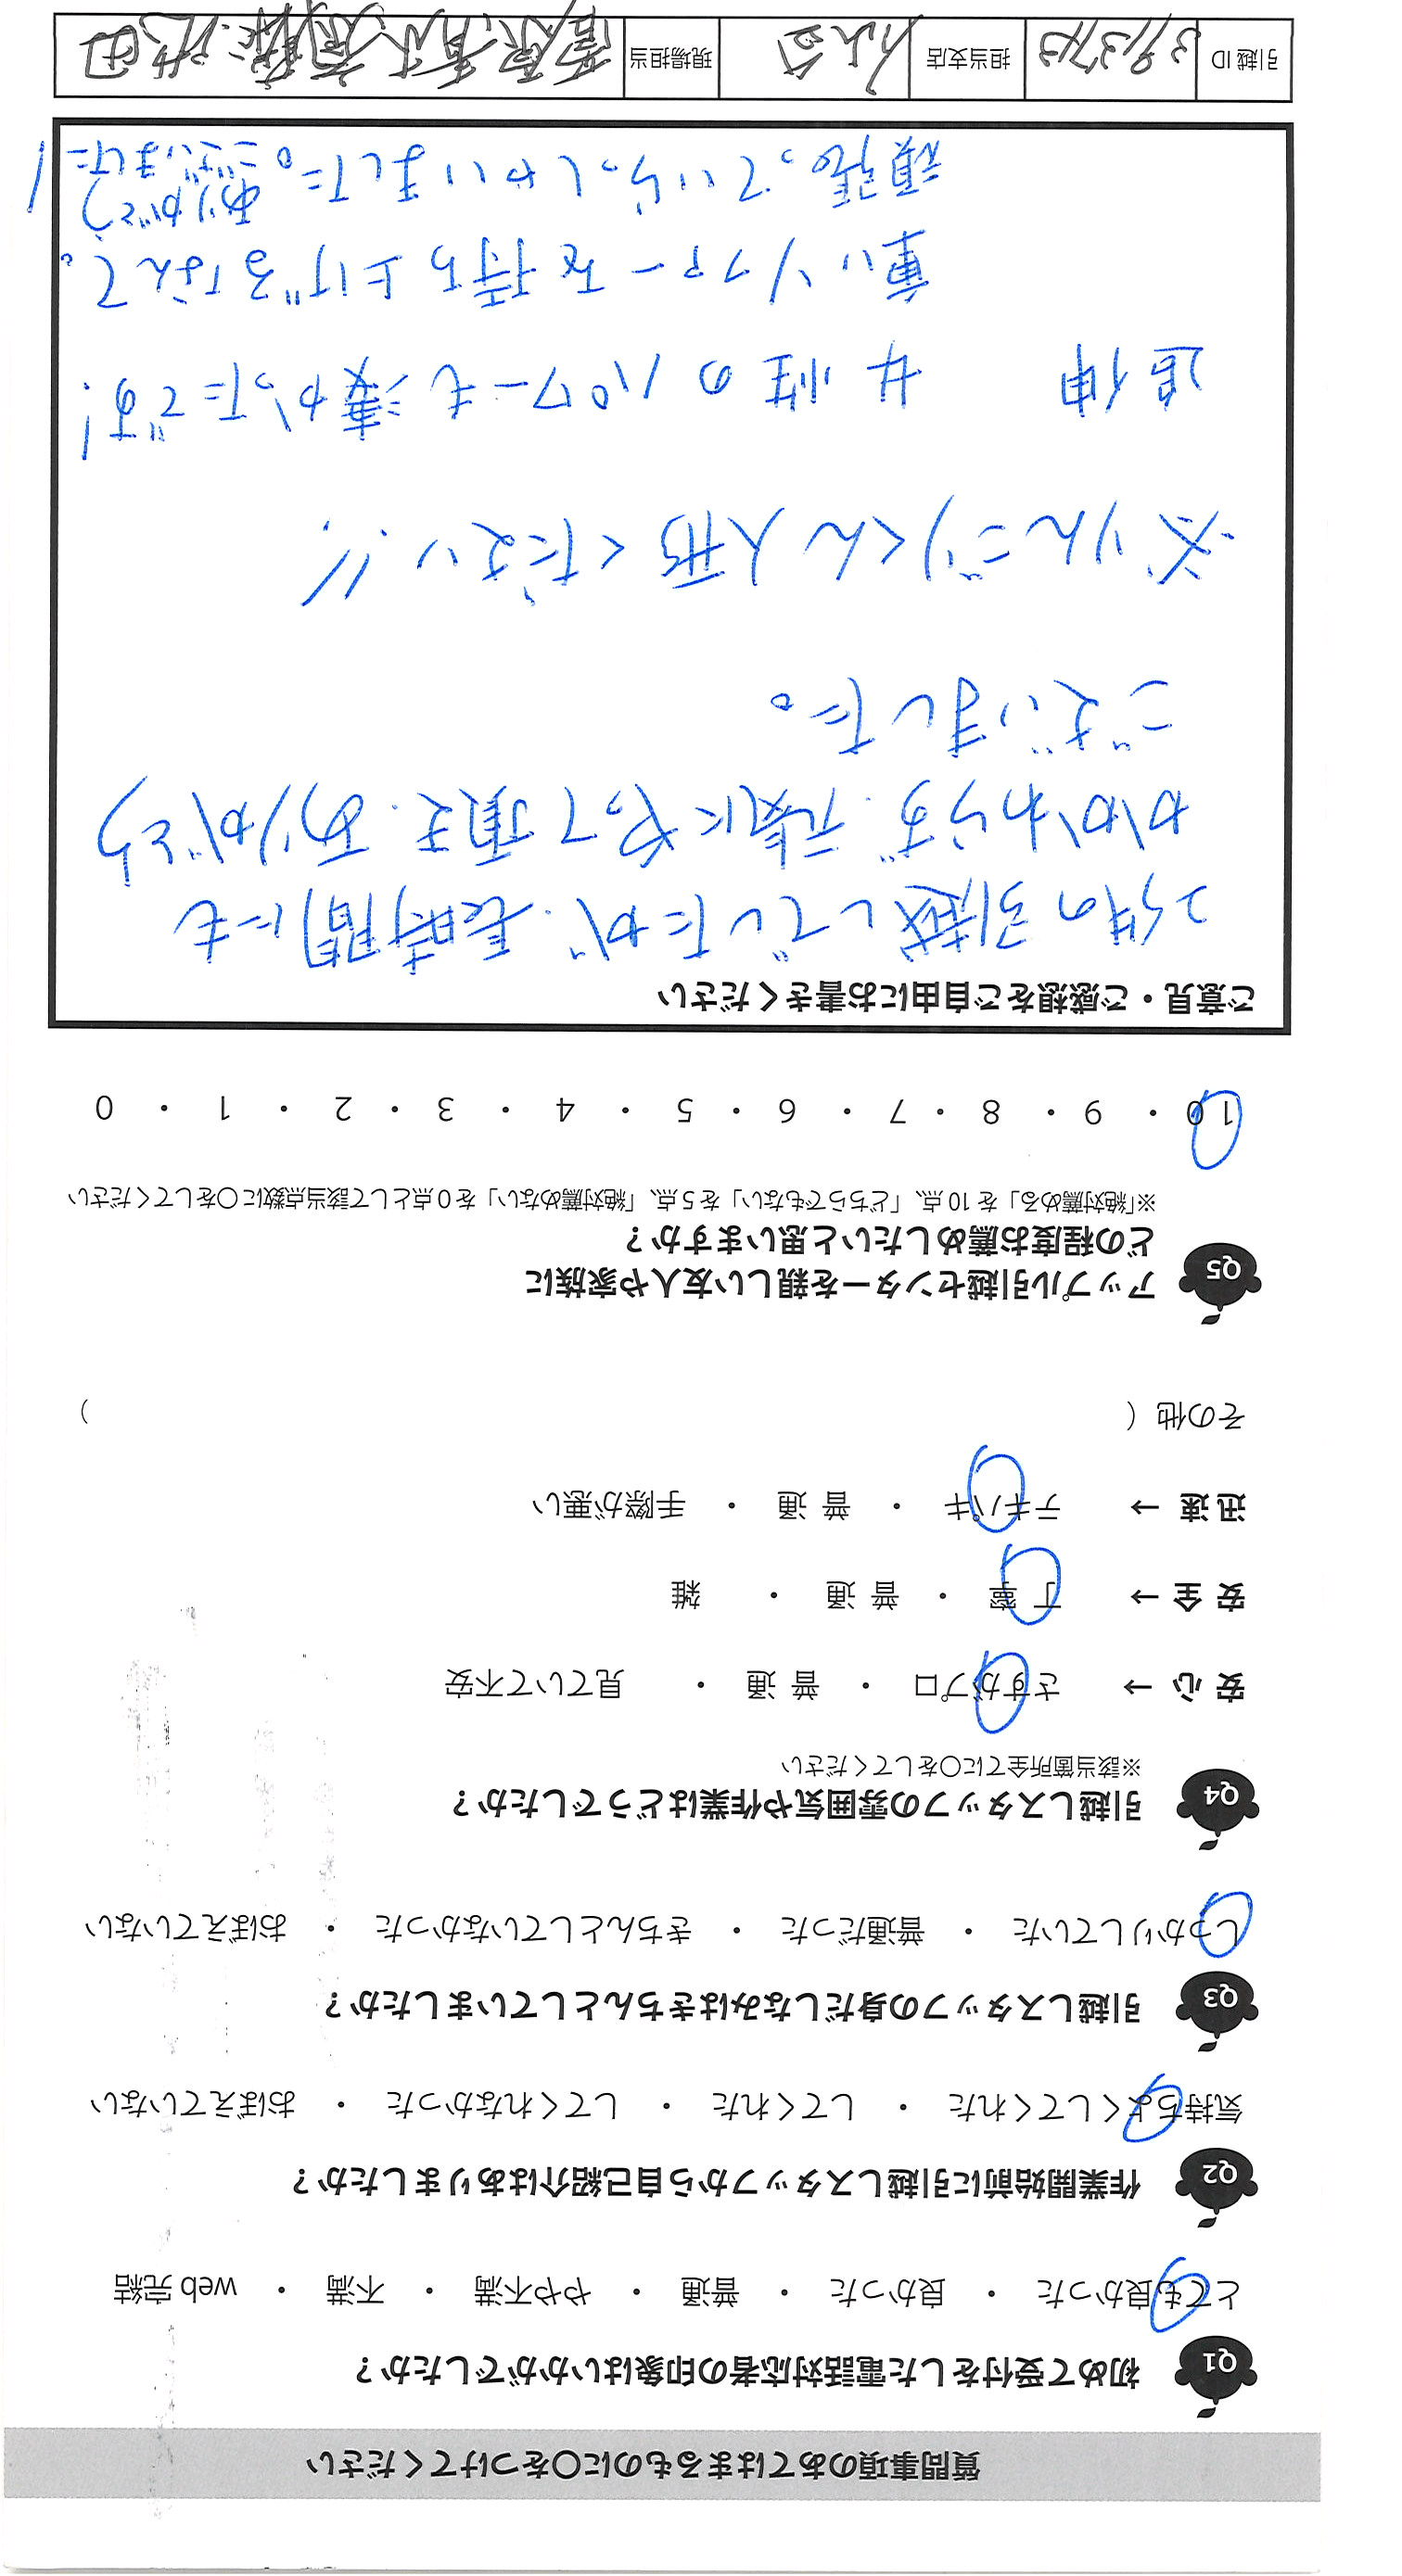 質問事項のあてはまるものに〇をつけてください
Q1 初めて受付をした電話対応者の印象はいかがでしたか？
とても良かった ・ 良かった ・ 普通 ・ やや不満 ・ 不満 ・ web 完結
Q2 作業開始前に引越しスタッフから自己紹介はありましたか？
気持ちよくしてくれた ・ してくれた ・ してくれなかった ・ おぼえていない
Q3 引越しスタッフの身だしなみはきちんとしていましたか？
しっかりしていた ・ 普通だった ・ きちんとしていなかった ・ おぼえていない
Q4 引越しスタッフの雰囲気や作業はどうでしたか？
※該当箇所全てに〇をしてください
安 心 → さすがプロ ・ 普 通 ・ 見ていて不安
安 全 → 丁 寧 ・ 普 通 ・ 雑
迅 速 → テキパキ ・ 普 通 ・ 手際が悪い
その他（ ）
Q5 アップル引越センターを親しい友人や家族に
どの程度お薦めしたいと思いますか？
※「絶対薦める」を 10 点、「どちらでもない」を 5 点、「絶対薦めない」を 0 点として該当点数に〇をしてください
10 ・ 9 ・ 8 ・ 7 ・ 6 ・ 5 ・ 4 ・ 3 ・ 2 ・ 1 ・ 0
ご意見・ご感想をご自由にお書きください
2件の引越しでしたが、長時間にも
かかわらず、元気にやって頂き、ありがとう
ございました。
※りんごりくん人形ください!!
追伸 女性のパワーも凄かったです!
重いソファーを持ち上げるなんて。
頑張っていらっしゃいました。ありがとう
ございました!
引越 ID 担当支店 仙台 現場担当 菅原 青木 斎藤 池田